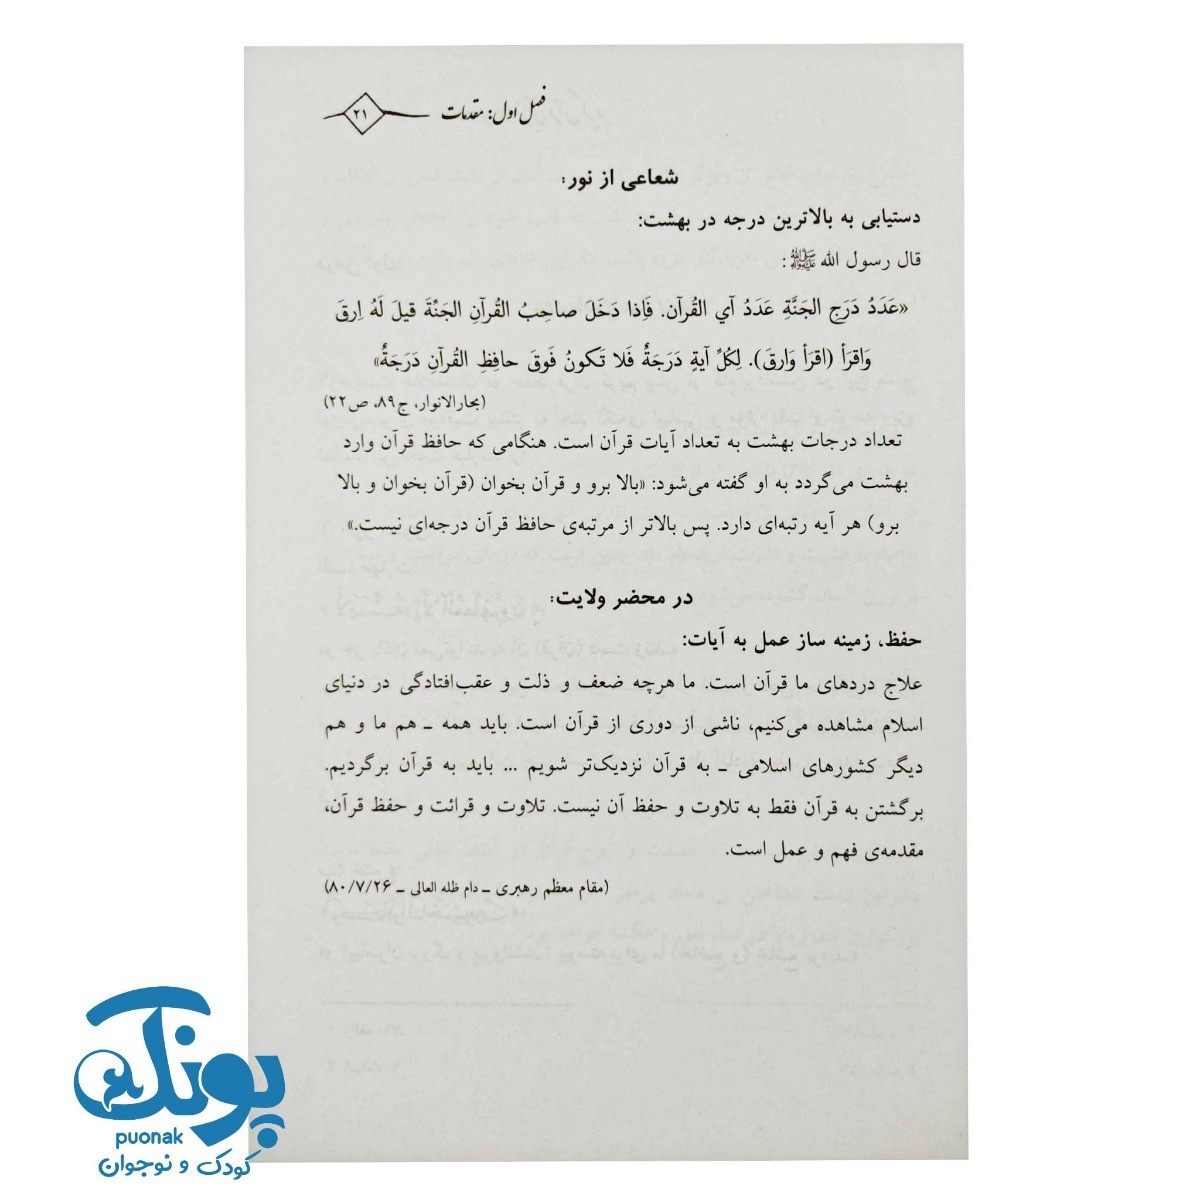 فصل اول: مقدمات ۲۱
شعاعی از نور:
دستیابی به بالاترین درجه در بهشت:
قال رسول الله ﷺ:
«عَدَدُ دَرَجِ الجَنَّةِ عَدَدُ آيِ القُرآن. فَاِذا دَخَلَ صاحِبُ القُرآنِ الجَنّةَ قيلَ لَهُ اِرقَ
وَاقرَأ (اقرَأ وَارقَ). لِكُلِّ آيةٍ دَرَجَةٌ فَلا تَكونُ فَوقَ حافِظِ القُرآنِ دَرَجَةٌ»
(بحارالانوار، ج۸۹، ص۲۲)
تعداد درجات بهشت به تعداد آیات قرآن است. هنگامی که حافظ قرآن وارد
بهشت می‌گردد به او گفته می‌شود: «بالا برو و قرآن بخوان (قرآن بخوان و بالا
برو) هر آیه رتبه‌ای دارد. پس بالاتر از مرتبه‌ی حافظ قرآن درجه‌ای نیست.»
در محضر ولایت:
حفظ، زمینه ساز عمل به آیات:
علاج دردهای ما قرآن است. ما هرچه ضعف و ذلت و عقب‌افتادگی در دنیای
اسلام مشاهده می‌کنیم، ناشی از دوری از قرآن است. باید همه ـ هم ما و هم
دیگر کشورهای اسلامی ـ به قرآن نزدیک‌تر شویم ... باید به قرآن برگردیم.
برگشتن به قرآن فقط به تلاوت و حفظ آن نیست. تلاوت و قرائت و حفظ قرآن،
مقدمه‌ی فهم و عمل است.
(مقام معظم رهبری ـ دام ظله العالی ـ ۸۰/۷/۲۶)
پونک
puonak
کودک و نوجوان